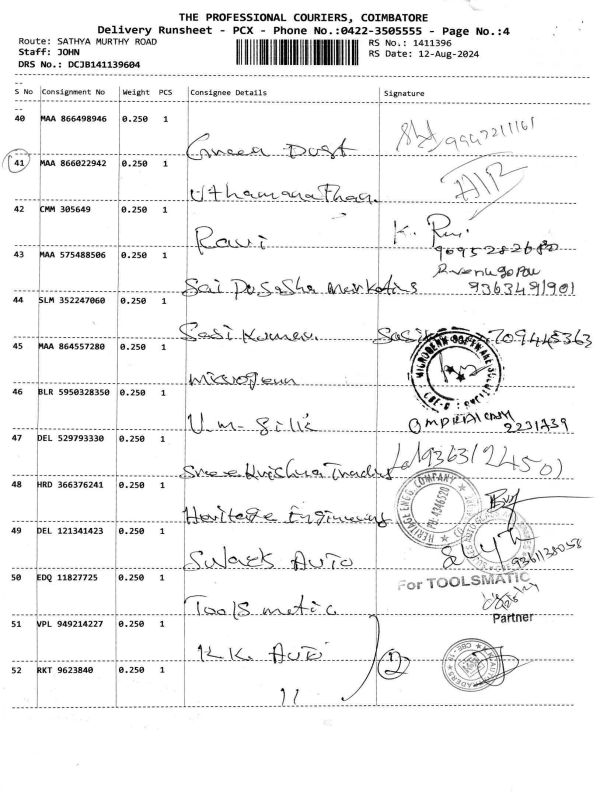 THE PROFESSIONAL COURIERS, COIMBATORE
Delivery Runsheet - PCX - Phone No.:0422-3505555 - Page No.:4
Route: SATHYA MURTHY ROAD
RS No.: 1411396
Staff: JOHN
RS Date: 12-Aug-2024
DRS No.: DCJB141139604
--
S No Consignment No Weight PCS Consignee Details Signature
--
40 MAA 866498946 0.250 1
9947211161
41 MAA 866022942 0.250 1
AIR
42 CMM 305649 0.250 1
Ravi K. Ravi
43 MAA 575488506 0.250 1
Sai Marketing 9363491901
44 SLM 352247060 0.250 1
Sasi Kumar 709445363
45 MAA 864557280 0.250 1
46 BLR 5950328350 0.250 1
U.M. Silks
2231439
47 DEL 529793330 0.250 1
Sree Krishna Traders
48 HRD 366376241 0.250 1
Heritage Engineering
HERITAGE ENGG COMPANY
PH: 4346520
49 DEL 121341423 0.250 1
Auto
50 EDQ 11827725 0.250 1
Tools matic
For TOOLSMATIC
Partner
51 VPL 949214227 0.250 1
K.K. Auto
2
52 RKT 9623840 0.250 1
11